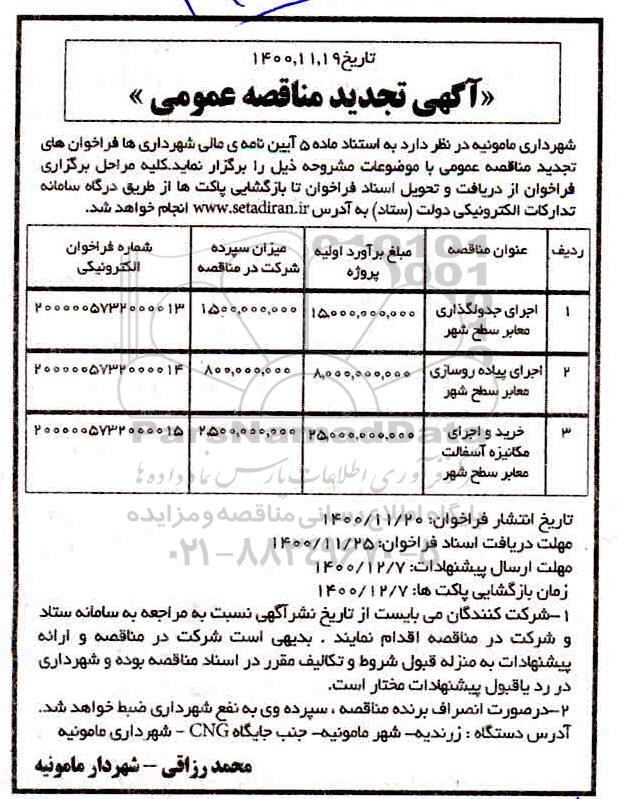 تاریخ۱۴۰۰,۱۱,۱۹
«آگهی تجدید مناقصه عمومی »
شهرداری مامونیه در نظر دارد به استناد ماده ۵ آیین نامه ی مالی شهرداری ها فراخوان های
تجدید مناقصه عمومی با موضوعات مشروحه ذیل را برگزار نماید.کلیه مراحل برگزاری
فراخوان از دریافت و تحویل اسناد فراخوان تا بازگشایی پاکت ها از طریق درگاه سامانه
تدارکات الکترونیکی دولت (ستاد) به آدرس www.setadiran.ir انجام خواهد شد.
ردیف عنوان مناقصه مبلغ برآورد اولیه پروژه میزان سپرده شرکت در مناقصه شماره فراخوان الکترونیکی
۱ اجرای جدولگذاری معابر سطح شهر ۱۵,۰۰۰,۰۰۰,۰۰۰ ۱,۵۰۰,۰۰۰,۰۰۰ ۲۰۰۰۰۰۵۷۳۲۰۰۰۰۱۳
۲ اجرای پیاده روسازی معابر سطح شهر ۸,۰۰۰,۰۰۰,۰۰۰ ۸۰۰,۰۰۰,۰۰۰ ۲۰۰۰۰۰۵۷۳۲۰۰۰۰۱۴
۳ خرید و اجرای مکانیزه آسفالت معابر سطح شهر ۲۵,۰۰۰,۰۰۰,۰۰۰ ۲,۵۰۰,۰۰۰,۰۰۰ ۲۰۰۰۰۰۵۷۳۲۰۰۰۰۱۵
ParsNamadData
فرآوری اطلاعات پارس نماد داده ها
پایگاه اطلاع رسانی مناقصه و مزایده
۰۲۱-۸۸۳۴۹۶۷۰-۸
تاریخ انتشار فراخوان: ۱۴۰۰/۱۱/۲۰
مهلت دریافت اسناد فراخوان: ۱۴۰۰/۱۱/۲۵
مهلت ارسال پیشنهادات: ۱۴۰۰/۱۲/۷
زمان بازگشایی پاکت ها: ۱۴۰۰/۱۲/۷
۱-شرکت کنندگان می بایست از تاریخ نشرآگهی نسبت به مراجعه به سامانه ستاد
و شرکت در مناقصه اقدام نمایند . بدیهی است شرکت در مناقصه و ارائه
پیشنهادات به منزله قبول شروط و تکالیف مقرر در اسناد مناقصه بوده و شهرداری
در رد یاقبول پیشنهادات مختار است.
۲-درصورت انصراف برنده مناقصه ، سپرده وی به نفع شهرداری ضبط خواهد شد.
آدرس دستگاه : زرندیه- شهر مامونیه- جنب جایگاه CNG - شهرداری مامونیه
محمد رزاقی - شهردار مامونیه